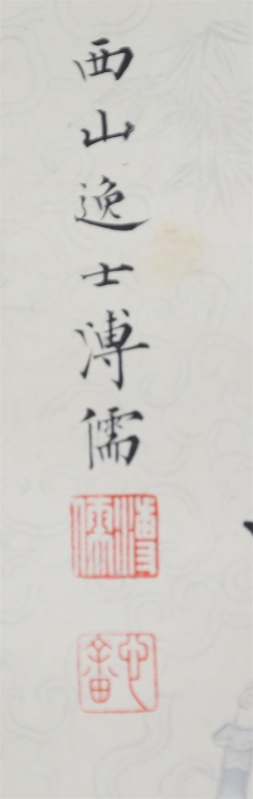 西山逸士溥儒
溥儒
心畬